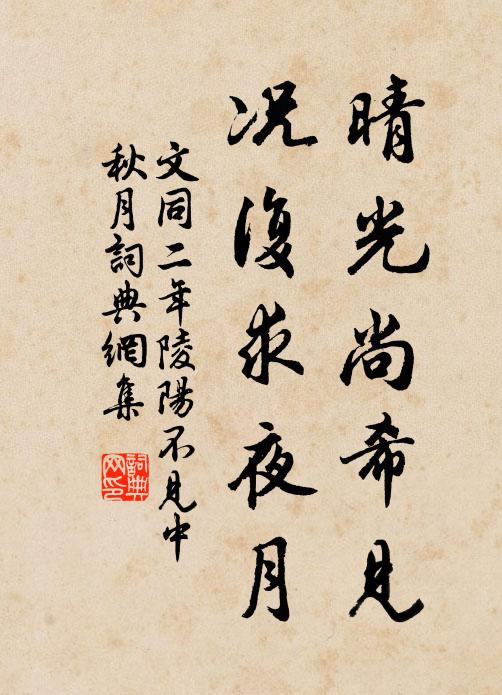 晴光尚希見
况復求夜月
文同二年陵陽不見中
秋月詞典網集
詞典
网印